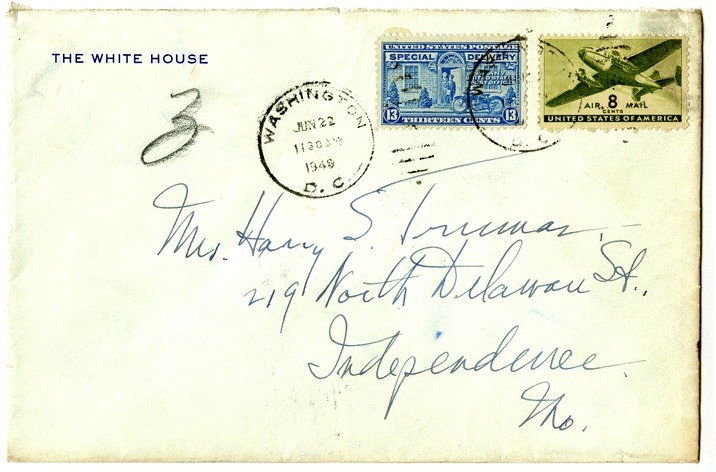 THE WHITE HOUSE
3
UNITED STATES POSTAGE
SPECIAL DELIVERY
13 THIRTEEN CENTS 13
AIR 8 MAIL
CENTS
UNITED STATES OF AMERICA
WASHINGTON
JUN 22
11 30 AM
1948
D. C.
D. C.
Mrs. Harry S. Truman
219 North Delaware St.,
Independence
Mo.